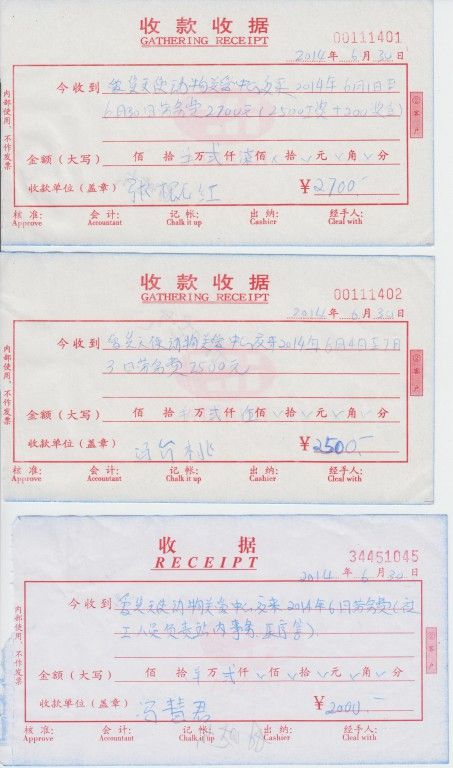 收款收据
GATHERING RECEIPT
00111401
2014 年 6 月 30 日
今收到 爱吴天使动物关爱中心交来2014年6月1日至
6月30日劳务费2700元(2500工资+200奖金)
金额(大写) 佰 拾 万 贰 仟 柒 佰 拾 元 角 分
收款单位(盖章) 张 红 ¥ 2700
核准: 会计: 记帐: 出纳: 经手人:
Approve Accountant Chalk it up Cashier Cleal with
内部使用,不作发票
②客户
收款收据
GATHERING RECEIPT
00111402
2014 年 6 月 30 日
今收到 天使动物关爱中心交来2014年6月4日至7月
3日劳务费2500元
金额(大写) 佰 拾 万 贰 仟 伍 佰 拾 元 角 分
收款单位(盖章) 桃 ¥ 2500.-
核准: 会计: 记帐: 出纳: 经手人:
Approve Accountant Chalk it up Cashier Cleal with
内部使用,不作发票
②客户
收据
RECEIPT
34451045
2014 年 6 月 30 日
今收到 天使动物关爱中心交来2014年6月劳务费(
工人员负责站内事务
金额(大写) 佰 拾 万 贰 仟 佰 拾 元 角 分
收款单位(盖章) 冯慧君 ¥ 2000.-
核准: 会计: 记帐: 出纳: 经手人:
Approve Accountant Chalk it up Cashier Cleal with
内部使用,不作发票
②客户